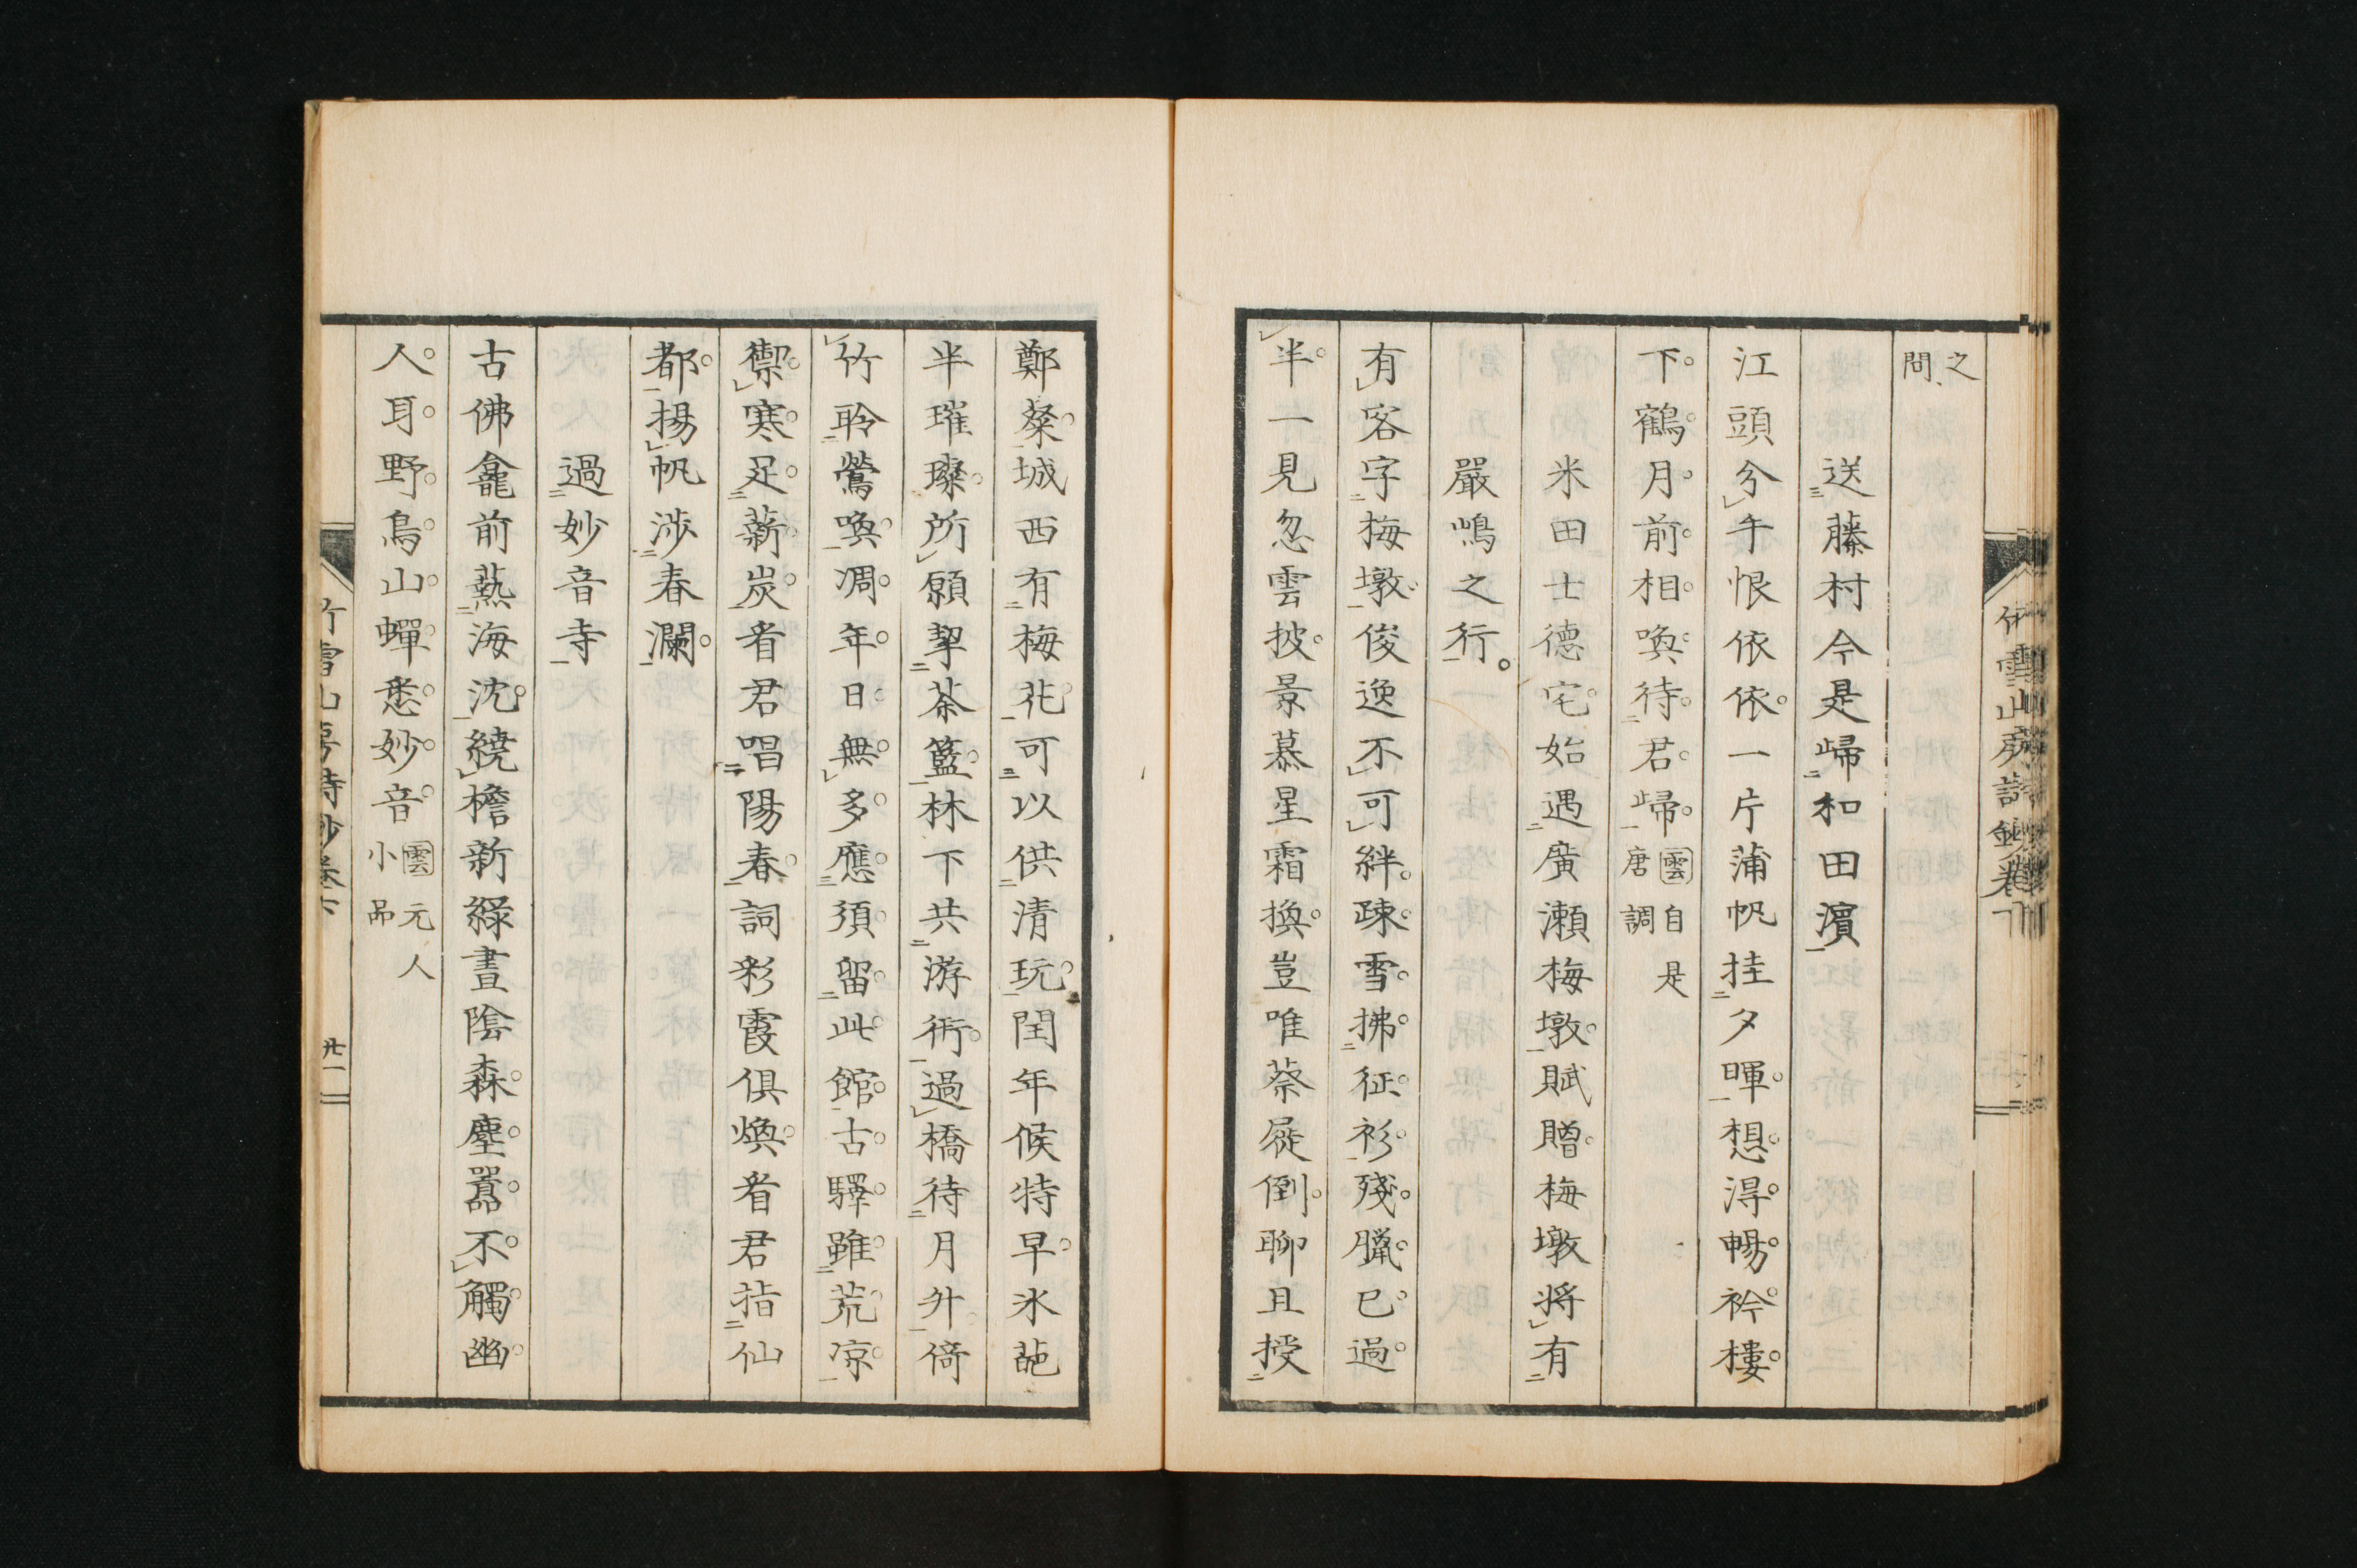 之
問
送藤村今是歸和田濵
江頭分手恨依依一片蒲帆挂夕暉想得暢衿樓
下鶴月前相喚待君歸雲自是
唐調
米田士德宅始遇廣瀬梅墩賦贈梅墩将有
嚴嶋之行
有客字梅墩俊逸不可絆疎雪拂征衫殘臘已過
半一見忽雲披景慕星霜換豈唯蔡屣倒聊且授
鄭粲城西有梅花可以供清玩閏年候特早氷葩
半璀璨所願挈茶籃林下共游衎過橋待月升倚
竹聆鶯喚凋年日無多應須留此館古驛雖荒凉
禦寒足薪炭看君唱陽春詞彩霞俱煥看君指仙
都揚帆涉春瀾
過妙音寺
古佛龕前爇海沈繞檐新緑晝陰森塵囂不觸幽
人耳野鳥山蟬悉妙音雲元人
小品
竹雪山房詩鈔卷下
廿一